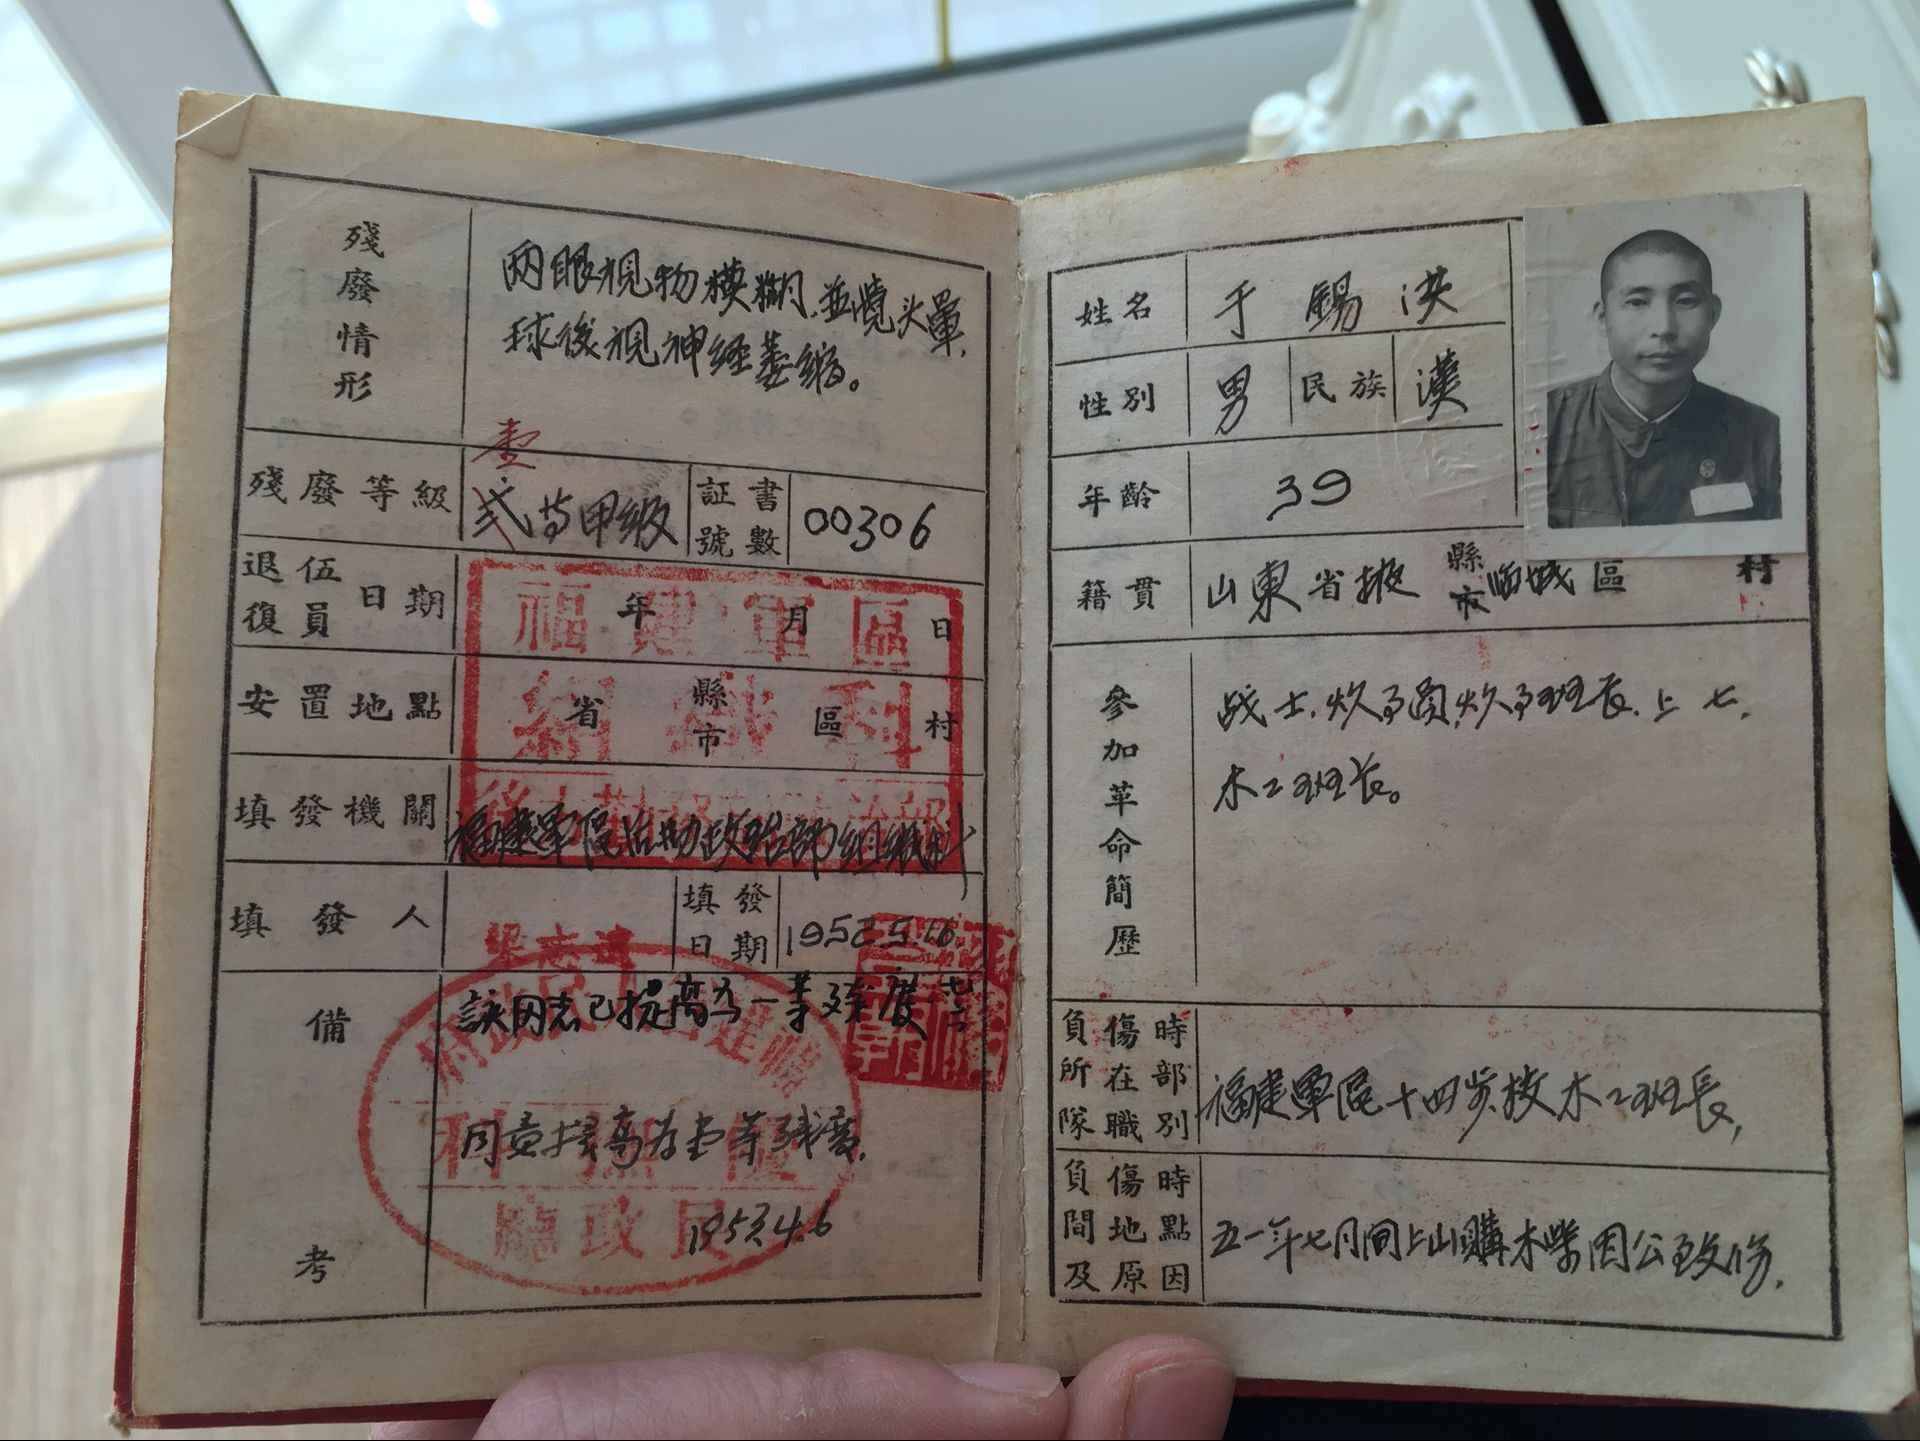 殘廢情形
兩眼視物模糊.並覺头暈.
球後視神経萎縮。
殘廢等級
壹
弍等甲級
証書號數
00306
退伍復員日期
年 月 日
安置地點
省 縣市 區 村
填發機關
福建軍區后勤政治部組織科
福建軍區
組織科
填發人
填發日期
1952.5.16.
備考
該同志已提高为一等殘廢
同意提高为壱等残廢.
1953.4.6
優撫科
民政廳
姓名
于錫洪
性別
男
民族
漢
年齡
39
籍貫
山東省掖縣市临城區 村
參加革命簡歷
战士.炊事員.炊事班長.上士.
木工班长。
負傷時所在部隊職別
福建軍區十四步校木工班長,
負傷時間地點及原因
五一年七月間上山購木柴因公致伤.